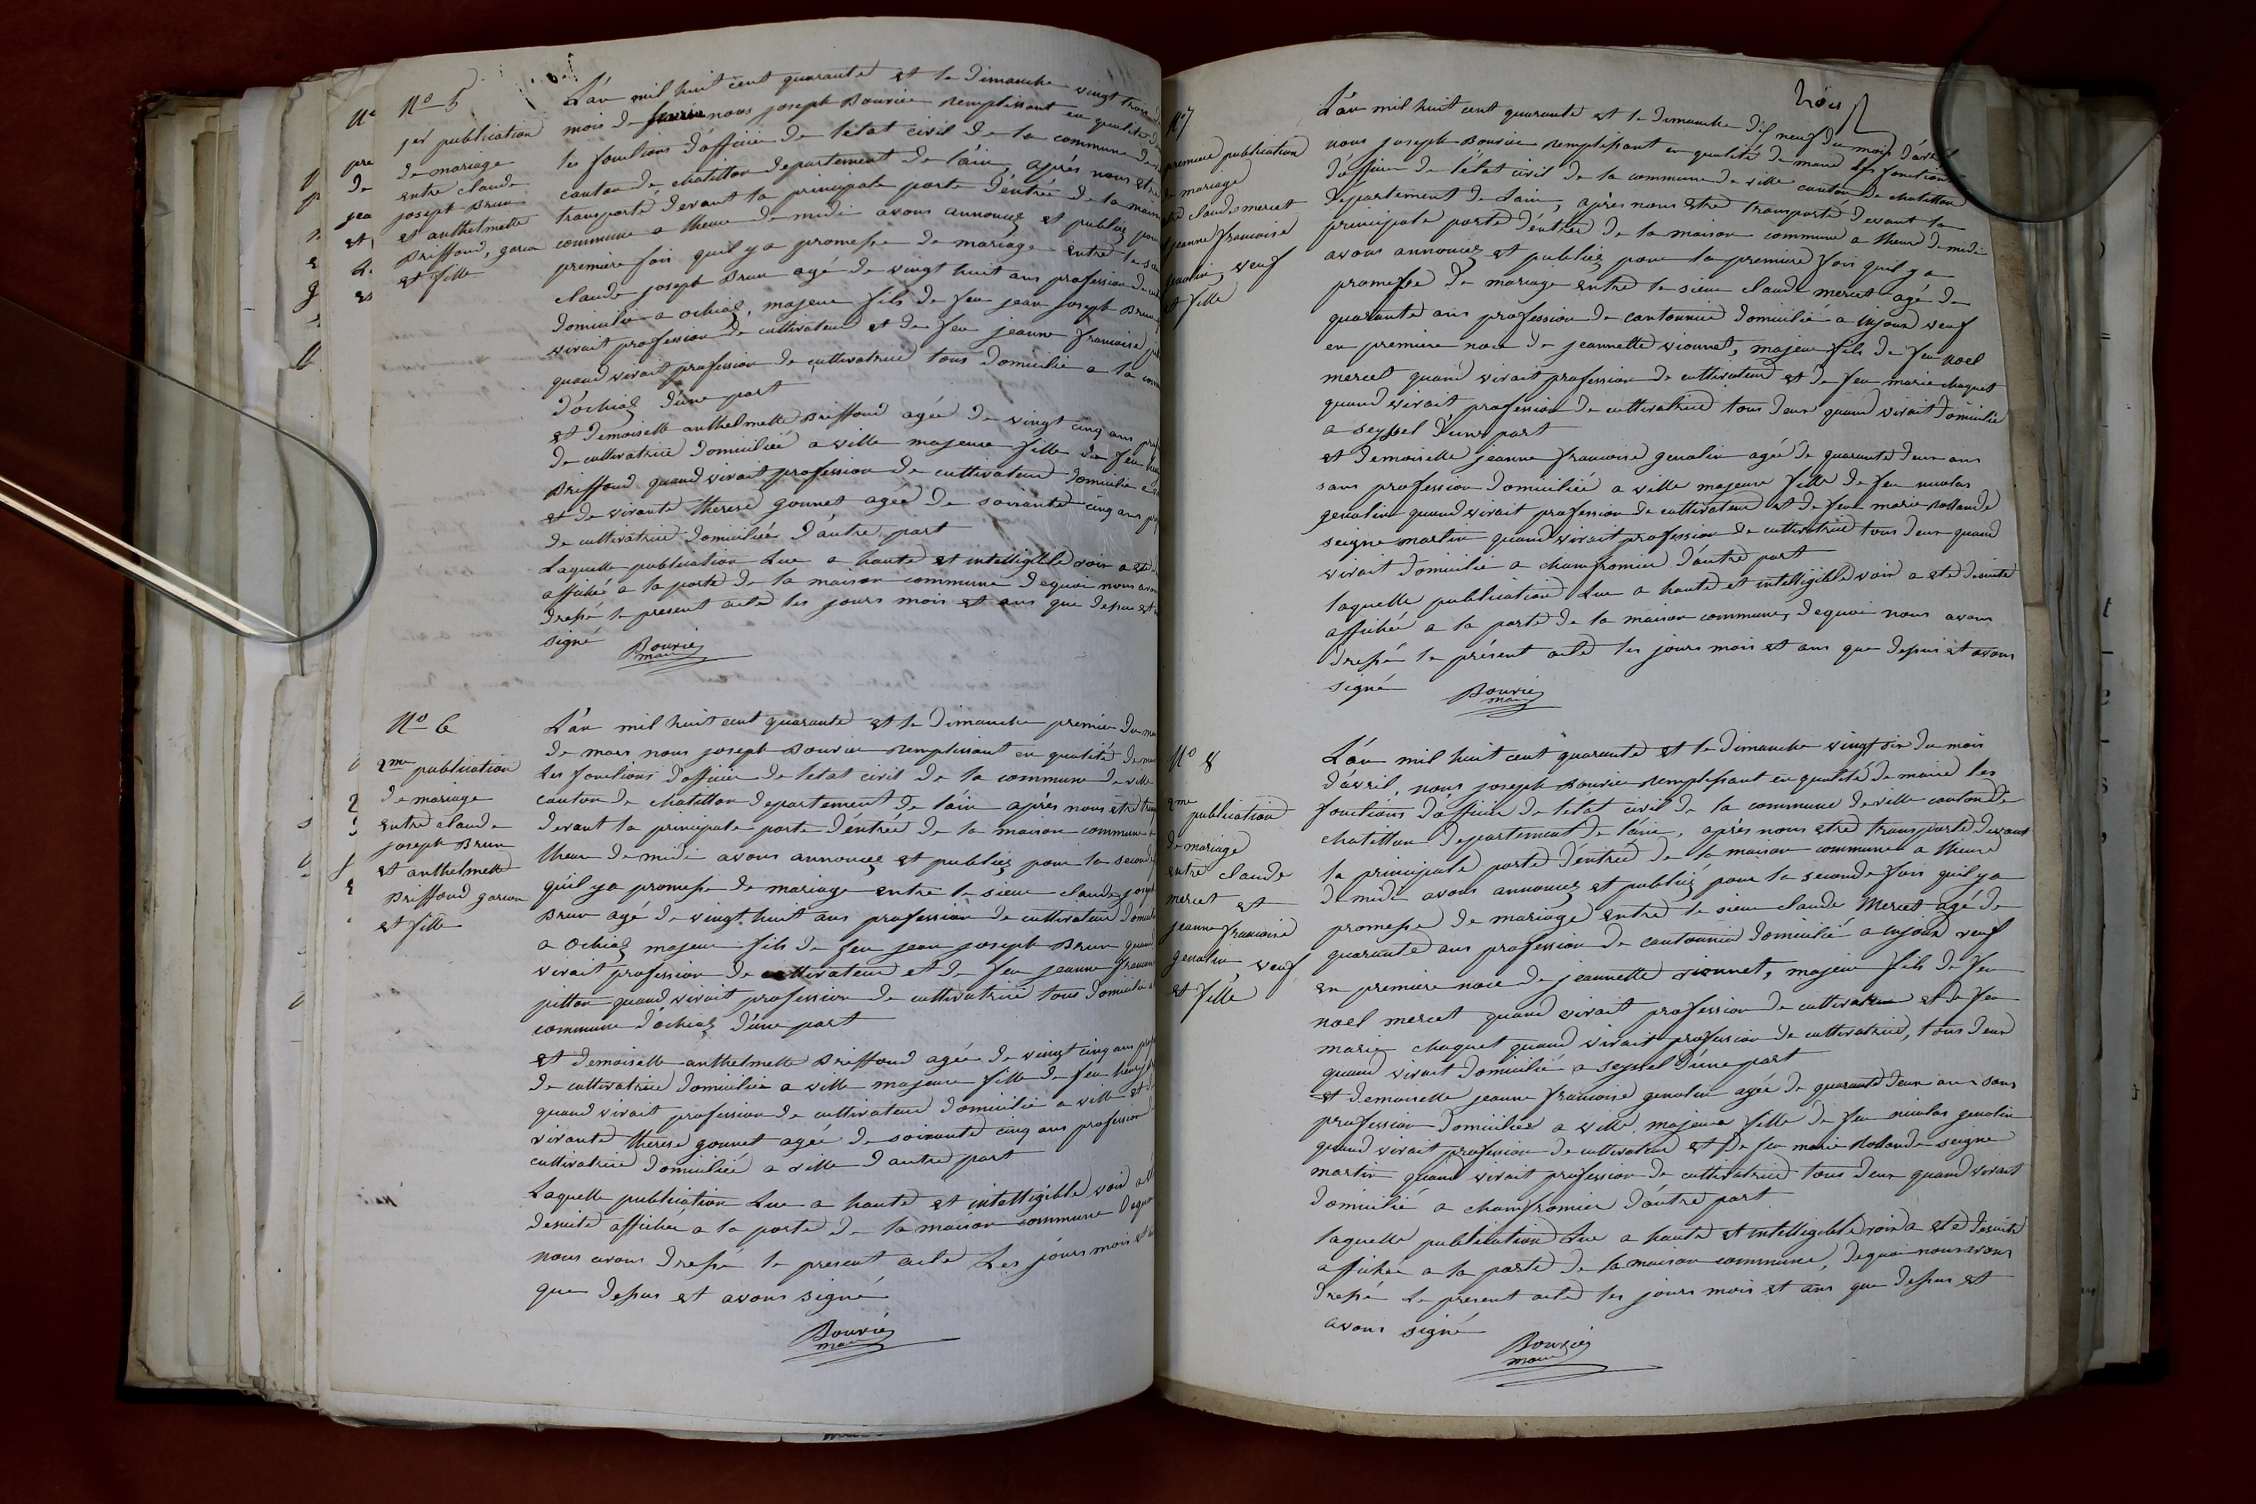 No 5
1er publication
de mariage
entre claude
joseph Brun
et anthelmette
Briffoud, garcon
et fille
L'an mil huit cent quarante et le dimanche vingt trois
mois de fevrier nous joseph Bouvier remplissant en qualité de
les fonctions d'officier de l'état civil de la commune de
canton de chatillon departement de l'ain, après nous etre
transporté devant la principale porte d'entrée de la maison
commune a lheure de midi avons annoncez et publiez pour
premiere fois quil y a promesse de mariage entre le sieur
claude joseph Brun agé de vingt huit ans profession de
domicilié a ochiaz, majeur fils de feu jean joseph Brun
vivait profession de cultivateur et de feu jeanne francoise
quand vivait profession de cultivatrice tous domicilié a la
d'ochiaz d'une part
et demoiselle anthelmette Briffoud agée de vingt cinq ans
de cultivatrice domiciliée a ville majeure fille de feu
Briffoud quand vivait profession de cultivateur domicilié a
et de vivante therese gonnet agée de soixante cinq ans
de cultivatrice domiciliée d'autre part
Laquelle publication Lue a haute et intelligible voix a été
affichée a la porte de la maison commune dequoi nous avons
dressé le present acte les jours mois et ans que dessus et
signé
Bouvier
maire
No 6
2me publication
de mariage
entre claude
joseph Brun
et anthelmette
Briffoud garcon
et fille
L'an mil huit cent quarante et le dimanche premier du
de mars nous joseph Bouvier remplissant en qualité de
les fonctions d'officier de l'etat civil de la commune de ville
canton de chatillon departement de l'ain après nous etre
devant la principale porte d'entrée de la maison commune a
lheure de midi avons annoncez et publiez pour la seconde
qu'il y a promesse de mariage entre le sieur claude joseph
Brun agé de vingt huit ans profession de cultivateur
a ochiaz majeur fils de feu jean joseph Brun quand
vivait profession de cultivateur et de feu jeanne
pitton quand vivait profession de cultivatrice tous domicilié
commune d'ochiaz d'une part
et demoiselle anthelmette Briffoud agée de vingt cinq ans
de cultivatrice domiciliée a ville majeure fille de feu
quand vivait profession de cultivateur domicilié a ville et
vivante therese gonnet agée de soixante cinq ans profession
cultivatrice domiciliée a ville d'autre part
Laquelle publication Lue a haute et intelligible voix a
desuite affichée a la porte de la maison commune
nous avons dressé le present acte Les jours mois et
que dessus et avons signé
Bouvier
maire
trois
No 7
premiere publication
de mariage
claude mercet
jeanne francoise
genolin, veuf
et fille
L'an mil huit cent quarante et le dimanche dix neuf du mois d'avril
nous joseph Bouvier remplissant en qualité de maire les fonctions
d'officier de l'état civil de la commune de ville canton de chatillon
département de l'ain, après nous etre transporté devant la
principale porte d'entrée de la maison commune a lheure de midi
avons annoncez et publiez pour la premiere fois quil y a
promesse de mariage entre le sieur claude mercet agé de
quarante ans profession de cantonnier domicilié a injoux veuf
en premiere noce de jeannette vionnet, majeur fils de feu noel
mercet quand vivait profession de cultivateur et de feu marie chaquet
quand vivait profession de cultivatrice tous deux quand vivait domicilié
a seyssel d'une part
et demoiselle jeanne francoise genolin agée de quarante deux ans
sans profession domiciliée a ville majeure fille de feu nicolas
genolin quand vivait profession de cultivateur et de feu marie Rollande
seigne martin quand vivait profession de cultivatrice tous deux quand
vivait domicilié a chamfromier d'autre part
laquelle publication Lue a haute et intelligible voix a été desuite
affichée a la porte de la maison commune, dequoi nous avons
dressé le présent acte les jours mois et ans que dessus et avons
signé
Bouvier
maire
No 8
2me
publication
de mariage
entre claude
mercet et
jeanne francoise
genolin, veuf
et fille
L'an mil huit cent quarante et le dimanche vingt six du mois
d'avril, nous joseph Bouvier remplissant en qualité de maire les
fonctions d'officier de l'etat civil de la commune de ville canton de
chatillon departement de l'ain, après nous etre transporté devant
la principale porte d'entrée de la maison commune a lheure
de midi avons annoncez et publiez pour la seconde fois quil y a
promesse de mariage entre le sieur claude Mercet agé de
quarante ans profession de cantonnier domicilié a injoux veuf
en premiere noce de jeannette vionnet, majeur fils de feu
noel mercet quand vivait profession de cultivateur et de feu
marie chaquet quand vivait profession de cultivatrice, tous deux
quand vivait domicilié a seyssel d'une part
et demoiselle jeanne francoise genolin agée de quarante deux ans sans
profession domiciliée a ville, majeure fille de feu nicolas genolin
quand vivait profession de cultivateur et de feu marie Rollande seigne
martin quand vivait profession de cultivatrice tous deux quand vivait
domicilié a chamfromier d'autre part
laquelle publication Lue a haute et intelligible voix a eté desuite
affichée a la porte de la maison commune, dequoi nous avons
dressé le present acte les jours mois et ans que dessus et
avons signé
Bouvier
maire